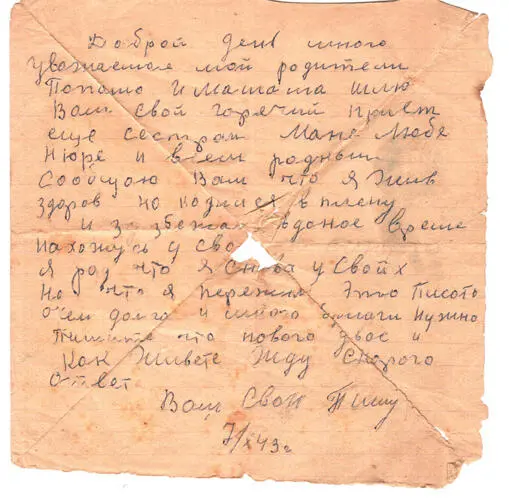 Доброй день много
уважаемая мой родители
Попаша И мамаша шлю
Вам свой горячий привет
еще сестрам Мане Любе
Нюре и всем родным
Сообщаю Вам что я Жив
здоров но находился в плену
и збежал вданое время
нахожусь у сво
Я рад что я снова у Своих
Но что я пережил Это Писать
очен долго и много бумаги нужно
Пишите что нового дома и
Как Живете Жду скорого
ответ
Ваш Свой Пишу
7/X 43 г